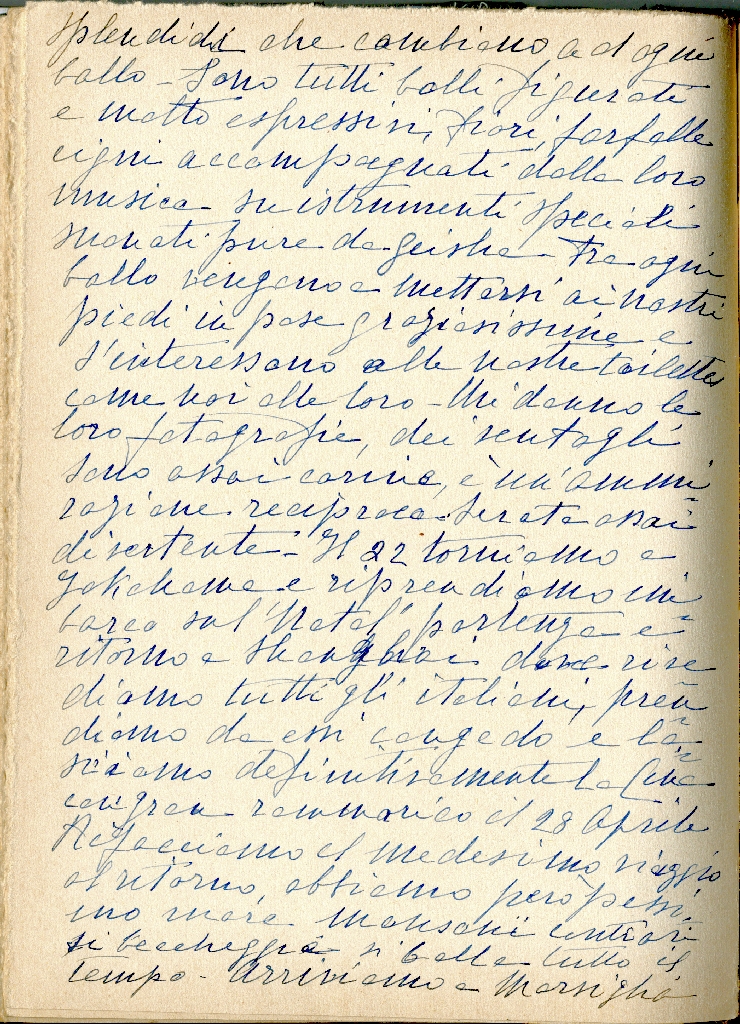 splendidi che cambiano ad ogni
ballo - Sono tutti balli figurati
e molto espressivi, fiori, farfalle
cigni accompagnati dalla loro
musica su istrumenti speciali
suonati pure da geisha - Fra ogni
ballo vengono a mettersi ai nostri
piedi in pose graziosissime e
s'interessano alle nostre toilettes
come noi alle loro - Mi danno le
loro fotografie, dei ventagli
sono assai carine, è un'ammi
razione reciproca. Serata assai
divertente - Il 22 torniamo a
Yokohama e riprendiamo im=
barco sul "Natal" partenza e
ritorno a Shanghai dove rive=
diamo tutti gli italiani, pren=
diamo da essi congedo e la=
sciamo definitivamente la Cina
con gran rammarico il 28 Aprile
Rifacciamo il medesimo viaggio
al ritorno, abbiamo però pessi=
mo mare monsoni contrari
si beccheggia si balla tutto il
tempo - Arriviamo a Marsiglia